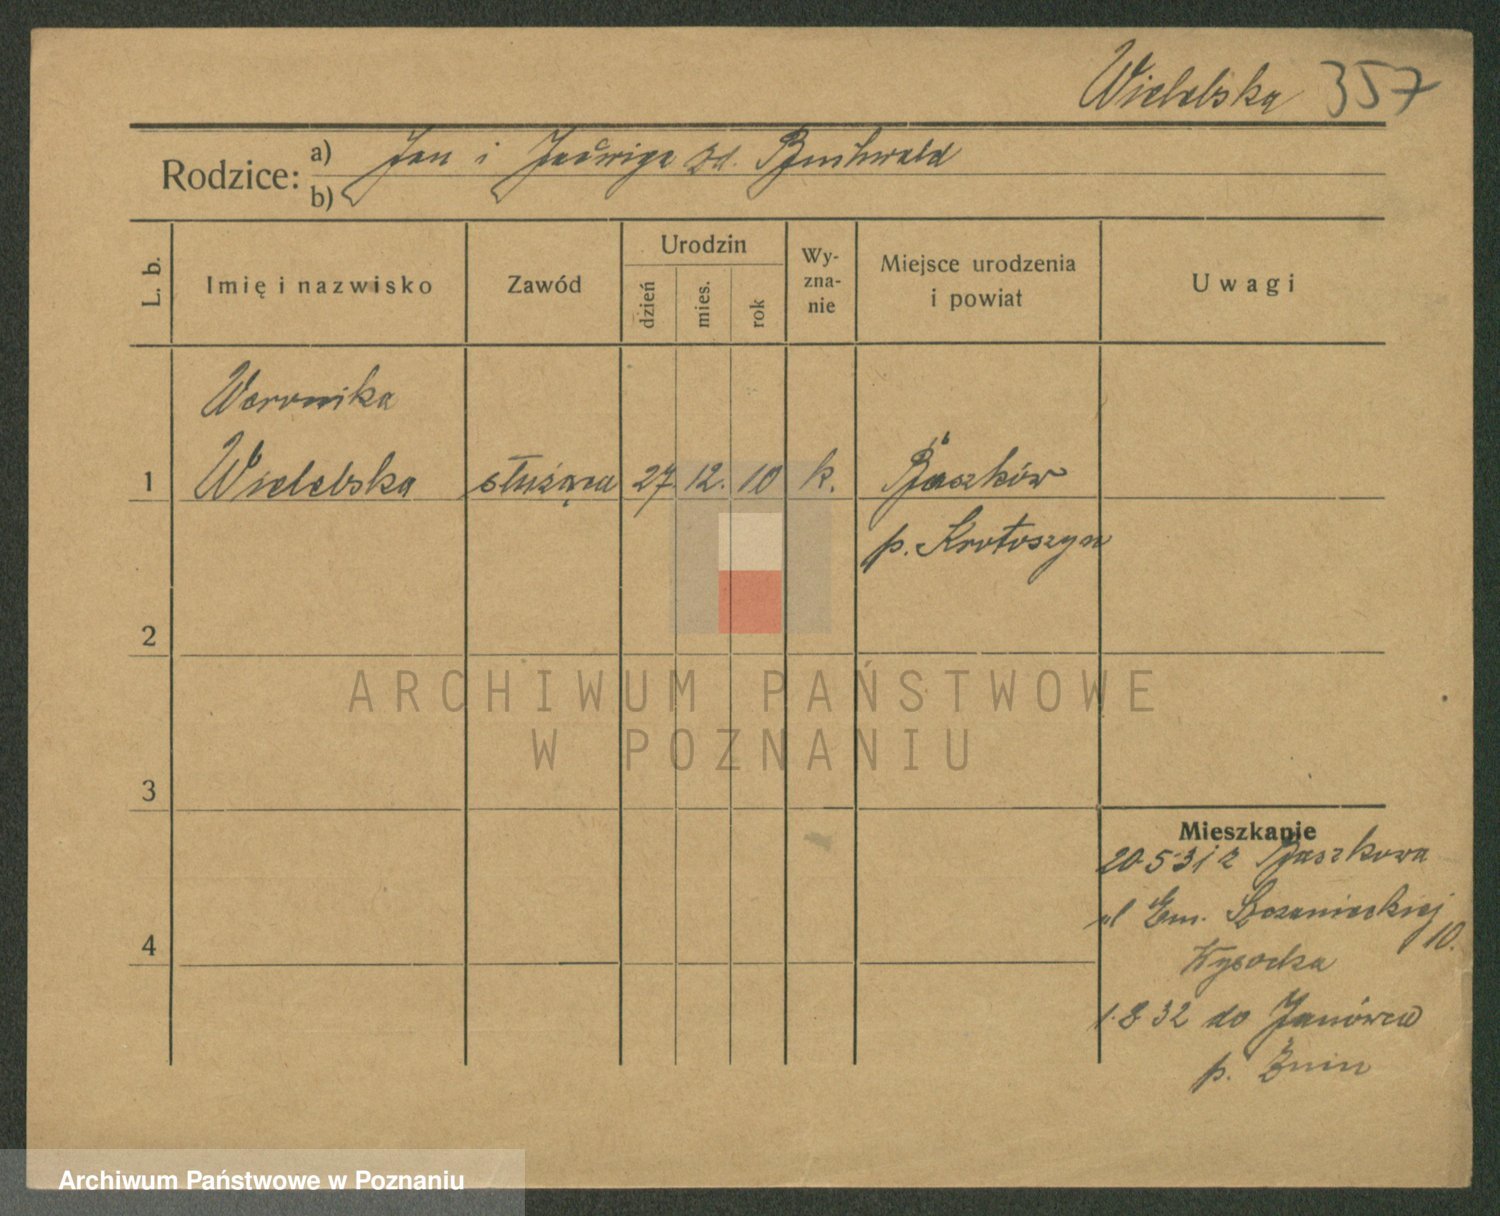 Wielebska 357
Rodzice: a) Jan i Jadwiga zd. Buchwald
b)
L. b. Imię i nazwisko Zawód Urodzin dzień mies. rok Wy-zna-nie Miejsce urodzenia i powiat Uwagi
Weronika
1 Wielebska służąca 27. 12. 10 k. Baszków
p. Krotoszyn
2
ARCHIWUM PAŃSTWOWE
W POZNANIU
3
Mieszkanie
20-5-31 z Baszkowa
ul Em. Sczanieckiej 10.
4
Wysocka
1.8 32 do Janówca
p. Żnin
Archiwum Państwowe w Poznaniu